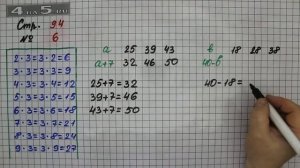 4А5.ru
Стр. 94
№ 6
2·3=3·2=6
3·3=3·3=9
4·3=3·4=12
5·3=3·5=15
6·3=3·6=18
7·3=3·7=21
8·3=3·8=24
9·3=3·9=27
а 25 39 43
а+7 32 46 50
25+7=32
39+7=46
43+7=50
в 18 28 38
40-в
40-18=